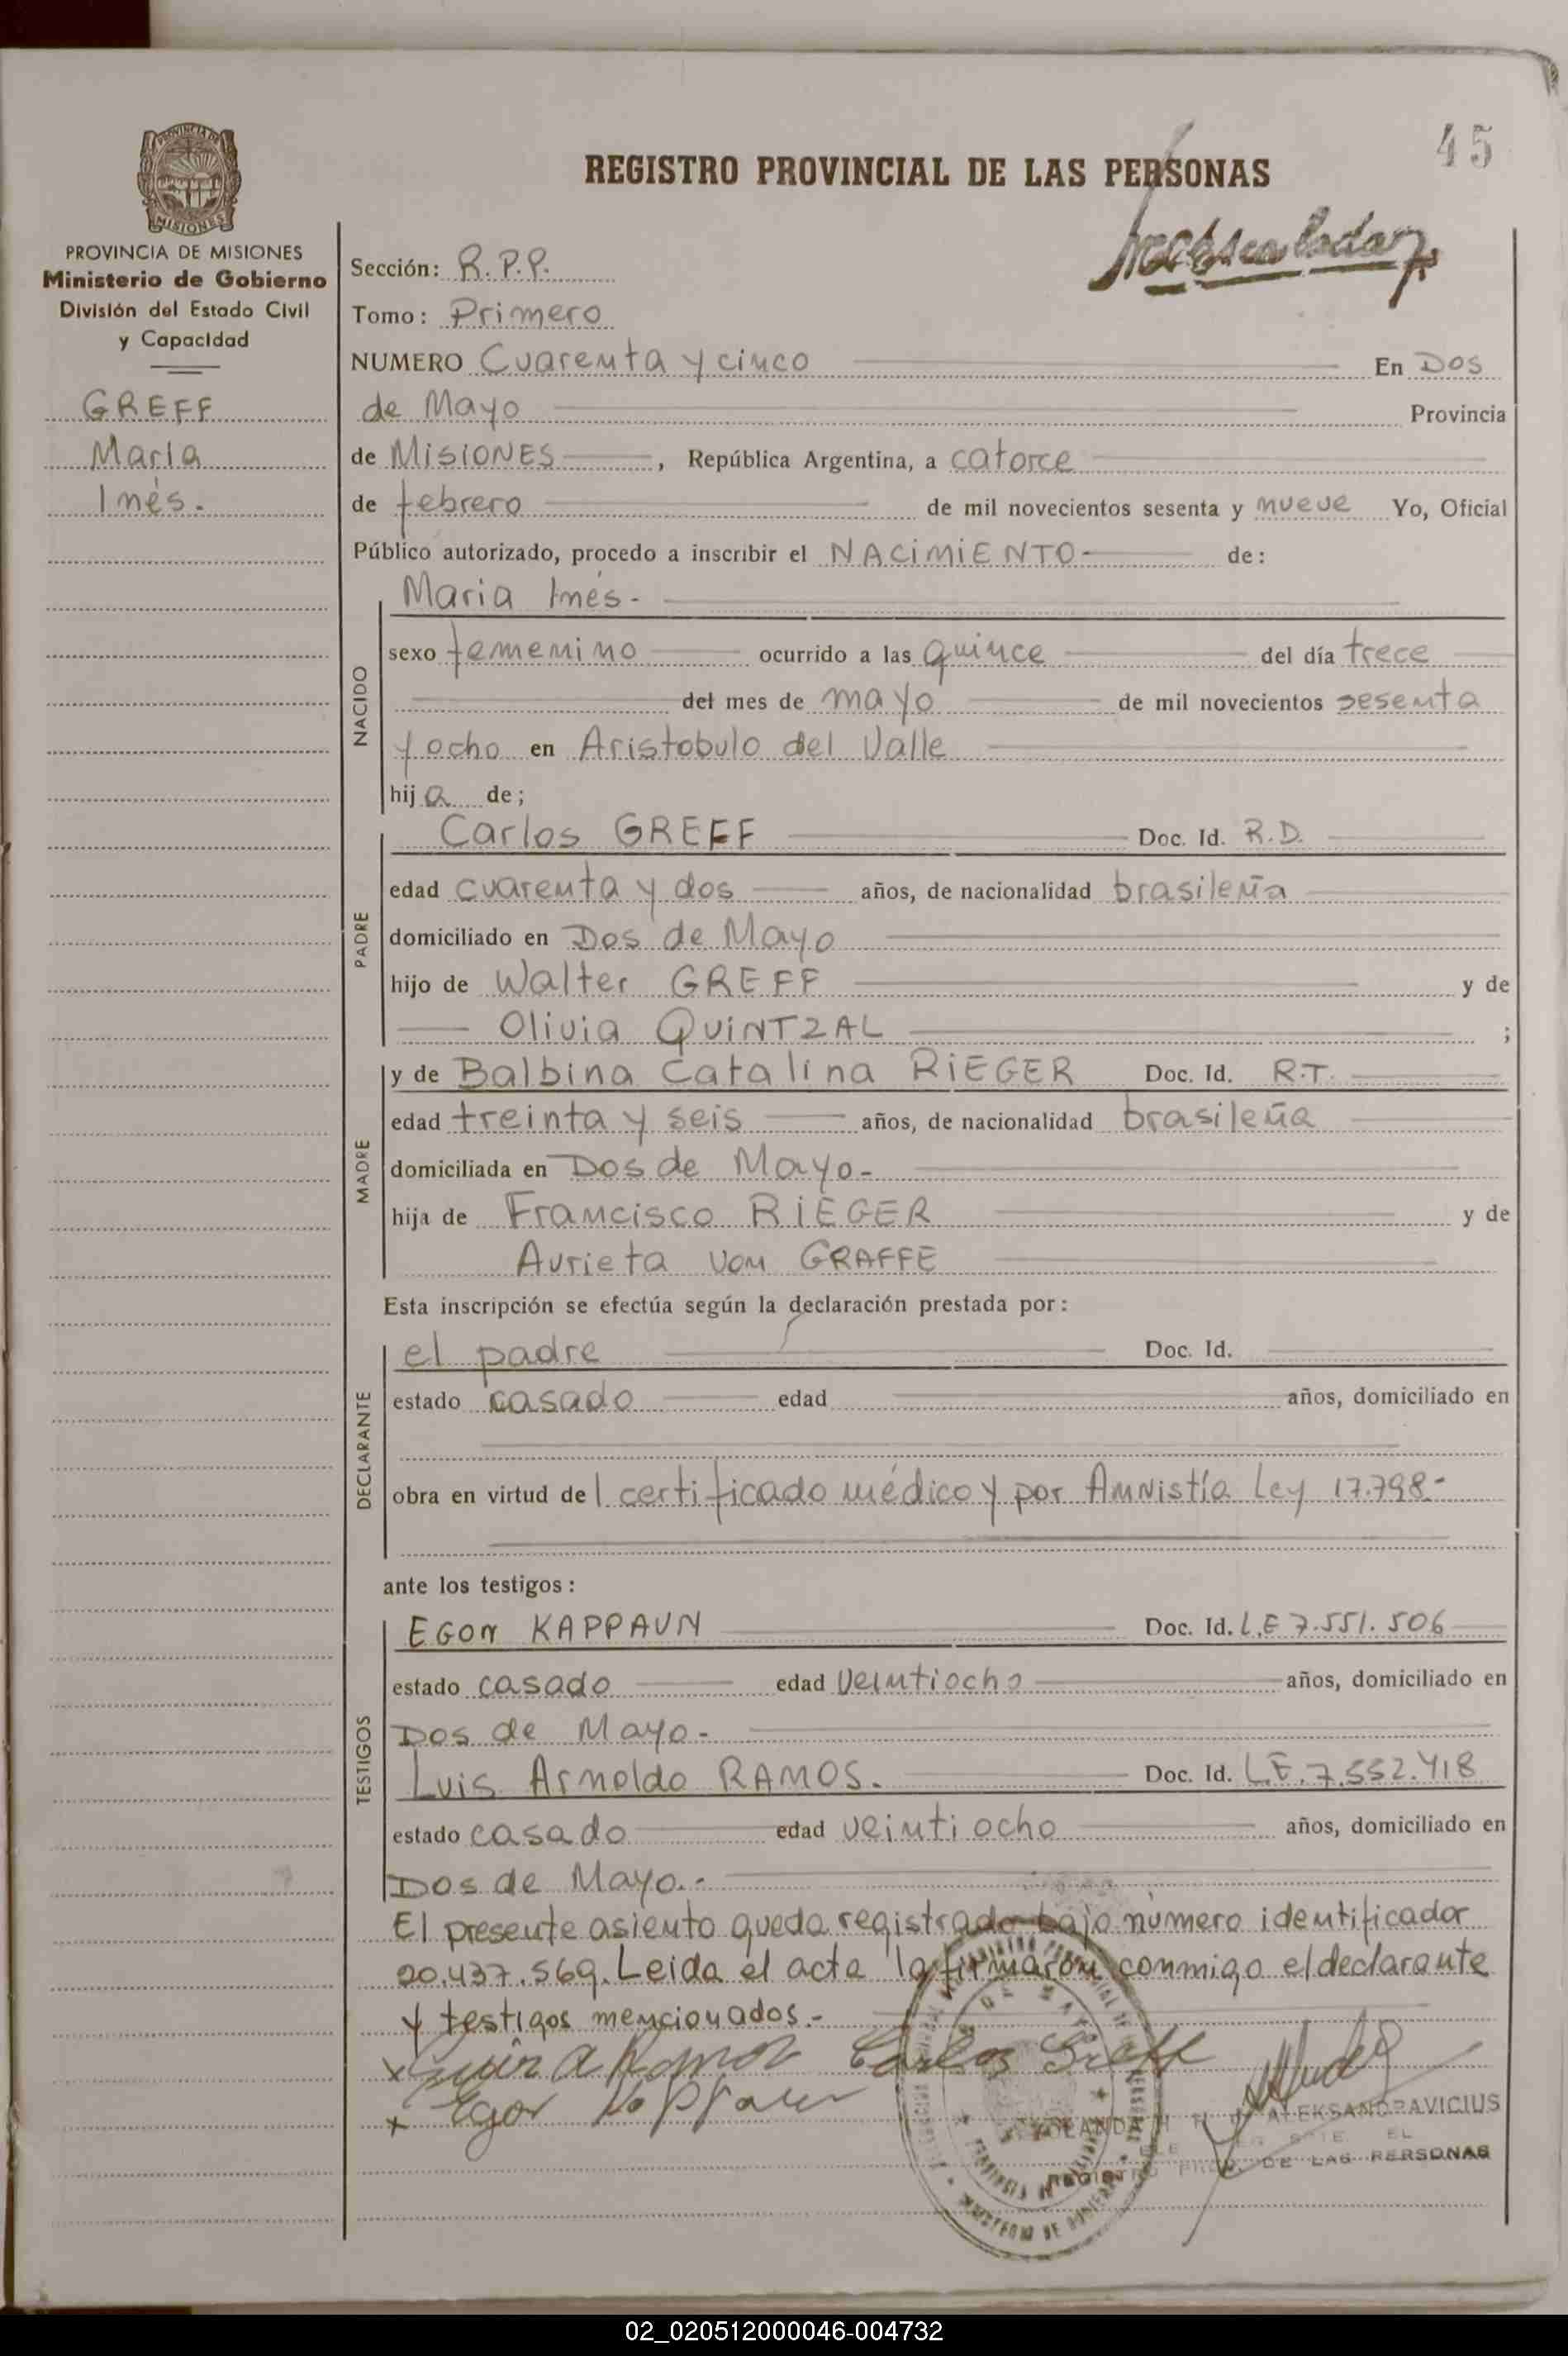 45
REGISTRO PROVINCIAL DE LAS PERSONAS
PROVINCIA DE MISIONES
Ministerio de Gobierno
División del Estado Civil
y Capacidad
GREFF
María
Inés.
Sección: R.P.P.
Tomo: Primero
NUMERO Cuarenta y cinco En Dos
de Mayo Provincia
de MISIONES, República Argentina, a catorce
de febrero de mil novecientos sesenta y nueve Yo, Oficial
Público autorizado, procedo a inscribir el NACIMIENTO- de:
NACIDO
Maria Inés-
sexo femenino ocurrido a las quince del día trece
del mes de mayo de mil novecientos sesenta
y ocho en Aristobulo del Valle
hija de;
PADRE
Carlos GREFF Doc. Id. R.D.
edad cuarenta y dos años, de nacionalidad brasileña
domiciliado en Dos de Mayo
hijo de Walter GREFF y de
Olivia QUINTZAL ;
MADRE
y de Balbina Catalina RIEGER Doc. Id. R.T.
edad treinta y seis años, de nacionalidad brasileña
domiciliada en Dos de Mayo-
hija de Francisco RIEGER y de
Aurieta von GRAFFE
Esta inscripción se efectúa según la declaración prestada por:
DECLARANTE
el padre Doc. Id.
estado casado edad años, domiciliado en
obra en virtud del certificado médico y por Amnistía Ley 17.798-
ante los testigos:
TESTIGOS
EGON KAPPAUN Doc. Id. L.E 7.551.506
estado casado edad veintiocho años, domiciliado en
Dos de Mayo-
Luis Arnoldo RAMOS. Doc. Id. L.E. 7.552.418
estado casado edad veintiocho años, domiciliado en
Dos de Mayo.-
El presente asiento queda registrado bajo número identificador
20.437.569. Leida el acta la firmaron conmigo el declarante
y testigos mencionados.-
x Luis A Ramos Carlos Greff
x Egon Kappaun
ALEKSANDRAVICIUS
REGISTRO PROV. DE LAS PERSONAS
02_020512000046-004732